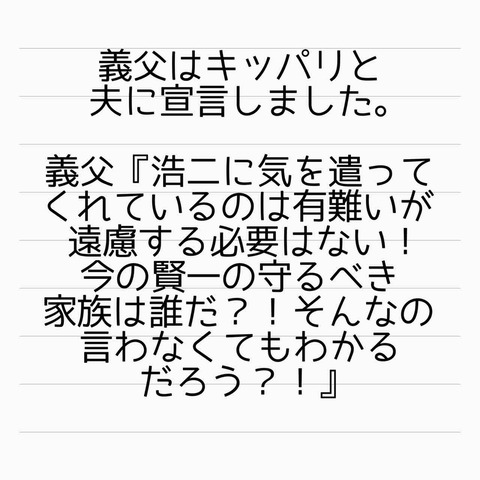 義父はキッパリと
夫に宣言しました。
義父『浩二に気を遣って
くれているのは有難いが
遠慮する必要はない！
今の賢一の守るべき
家族は誰だ？！そんなの
言わなくてもわかる
だろう？！』